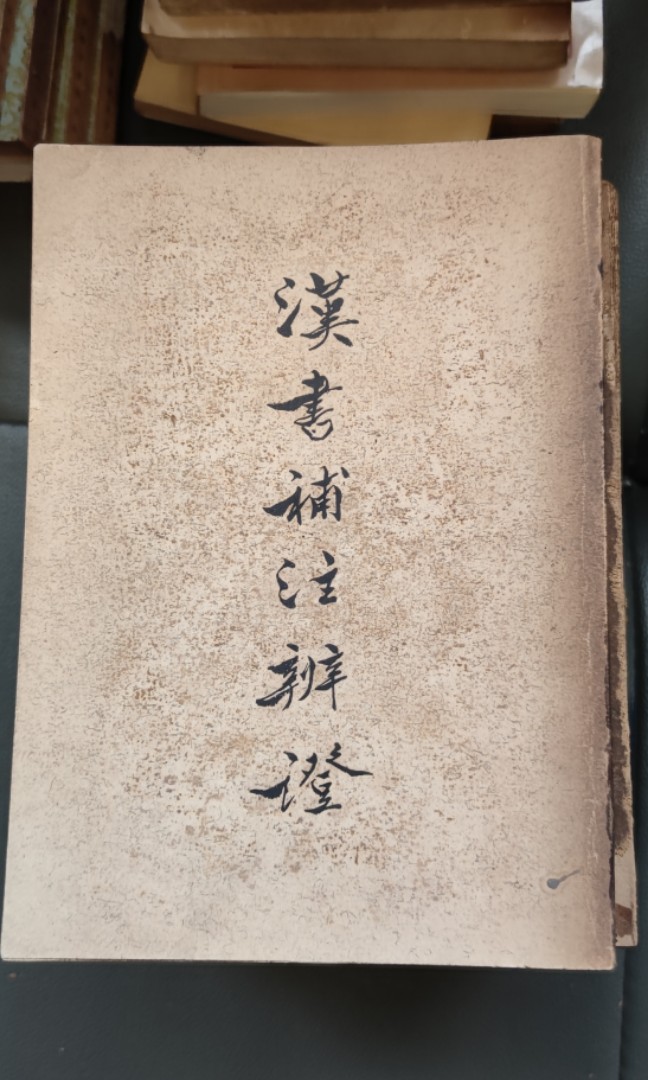 漢書補注辨證